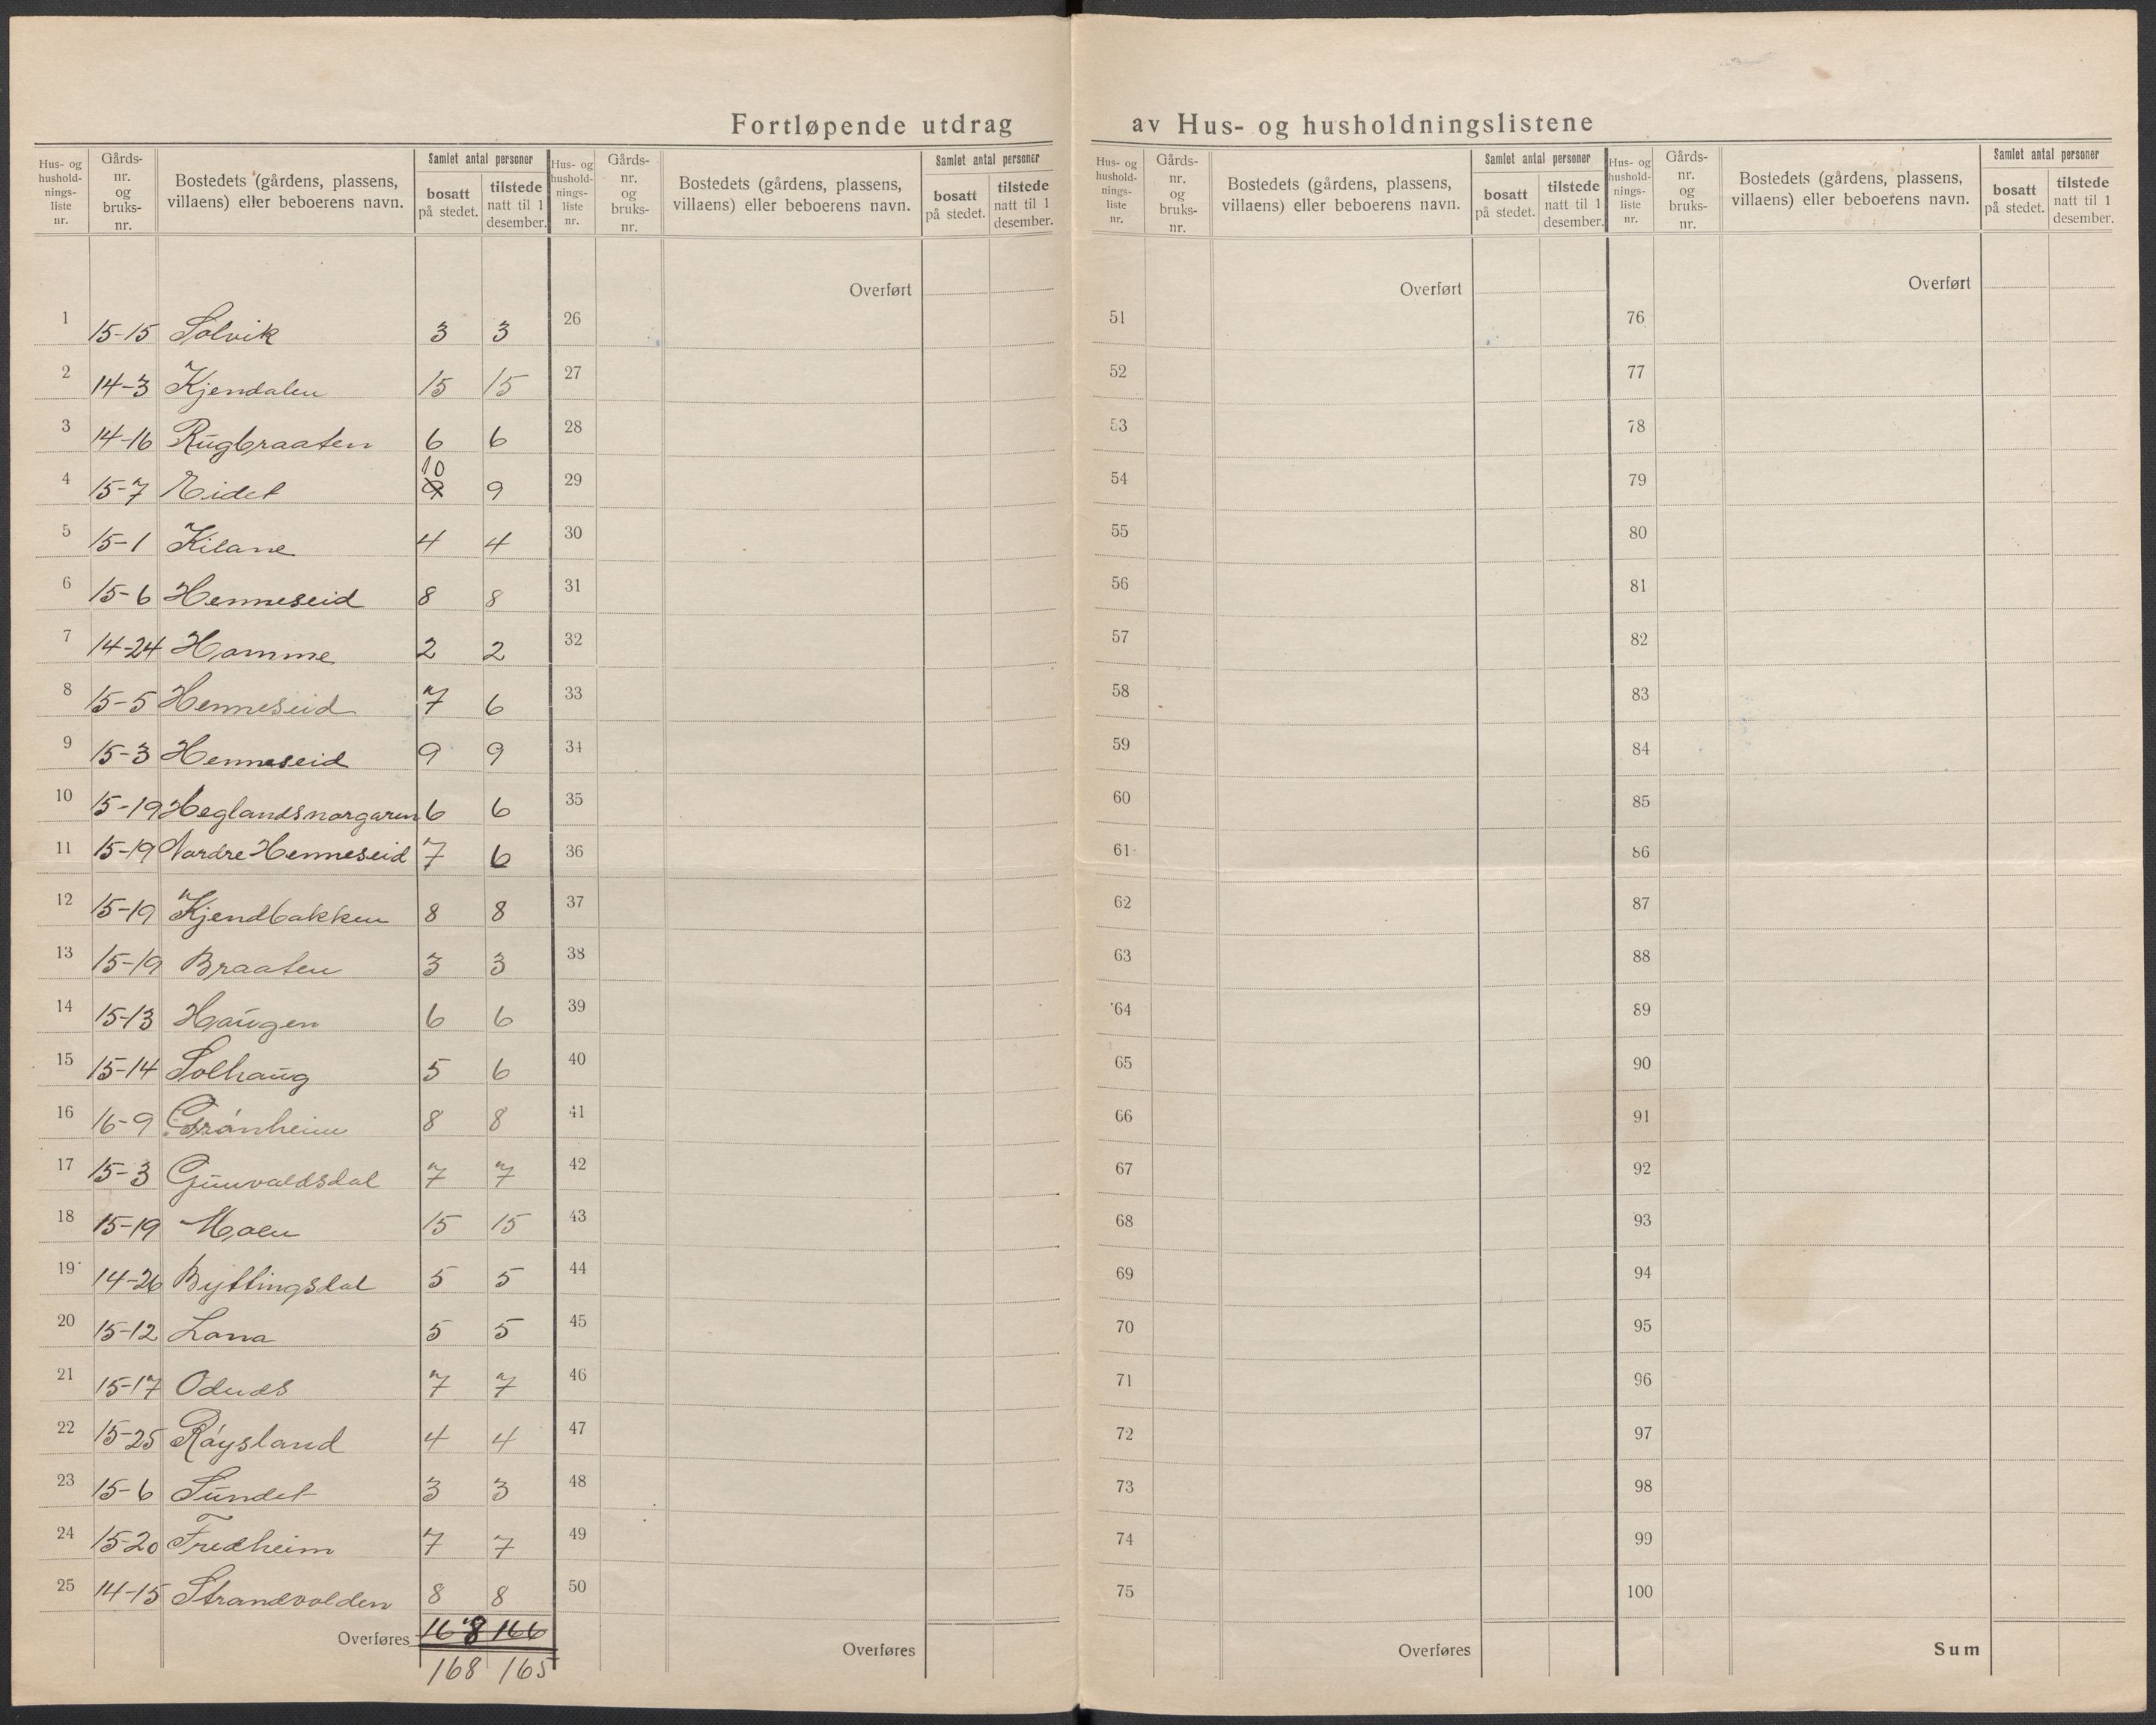 Fortløpende utdrag av Hus- og husholdningslistene
Hus- og husholdnings-liste nr. | Gårds-nr. og bruks-nr. | Bostedets (gårdens, plassens, villaens) eller beboerens navn. | Samlet antal personer | bosatt på stedet. | tilstede natt til 1 desember.
Hus- og hushold-nings-liste nr. | Gårds-nr. og bruks-nr. | Bostedets (gårdens, plassens, villaens) eller beboerens navn. | Samlet antal personer | bosatt på stedet. | tilstede natt til 1 desember.
Hus- og hushold-nings-liste nr. | Gårds-nr. og bruks-nr. | Bostedets (gårdens, plassens, villaens) eller beboerens navn. | Samlet antal personer | bosatt på stedet. | tilstede natt til 1 desember.
Hus- og hushold-nings-liste nr. | Gårds-nr. og bruks-nr. | Bostedets (gårdens, plassens, villaens) eller beboerens navn. | Samlet antal personer | bosatt på stedet. | tilstede natt til 1 desember.
1 15-15 Solvik 3 3
2 14-3 Kjendalen 15 15
3 14-16 Rugbraaten 6 6
4 15-7 Eidet 10 9 9
5 15-1 Kilane 4 4
6 15-6 Henneseid 8 8
7 14-24 Homme 2 2
8 15-5 Henneseid 7 6
9 15-3 Henneseid 9 9
10 15-19 Heglandsnorgaren 6 6
11 15-19 Nordre Henneseid 7 6
12 15-19 Kjendbakken 8 8
13 15-19 Braaten 3 3
14 15-13 Haugen 6 6
15 15-14 Solhaug 5 6
16 16-9 Grönheim 8 8
17 15-3 Gunvaldsdal 7 7
18 15-19 Moen 15 15
19 14-26 Byttingsdal 5 5
20 15-12 Lona 5 5
21 15-17 7 7
22 15-25 Röysland 4 4
23 15-6 Sundet 3 3
24 15-20 Fredheim 7 7
25 14-15 Strandvolden 8 8
Overføres 168 166
168 165
Overført
26
27
28
29
30
31
32
33
34
35
36
37
38
39
40
41
42
43
44
45
46
47
48
49
50
Overføres
Overført
51
52
53
54
55
56
57
58
59
60
61
62
63
64
65
66
67
68
69
70
71
72
73
74
75
Overføres
Overført
76
77
78
79
80
81
82
83
84
85
86
87
88
89
90
91
92
93
94
95
96
97
98
99
100
Sum